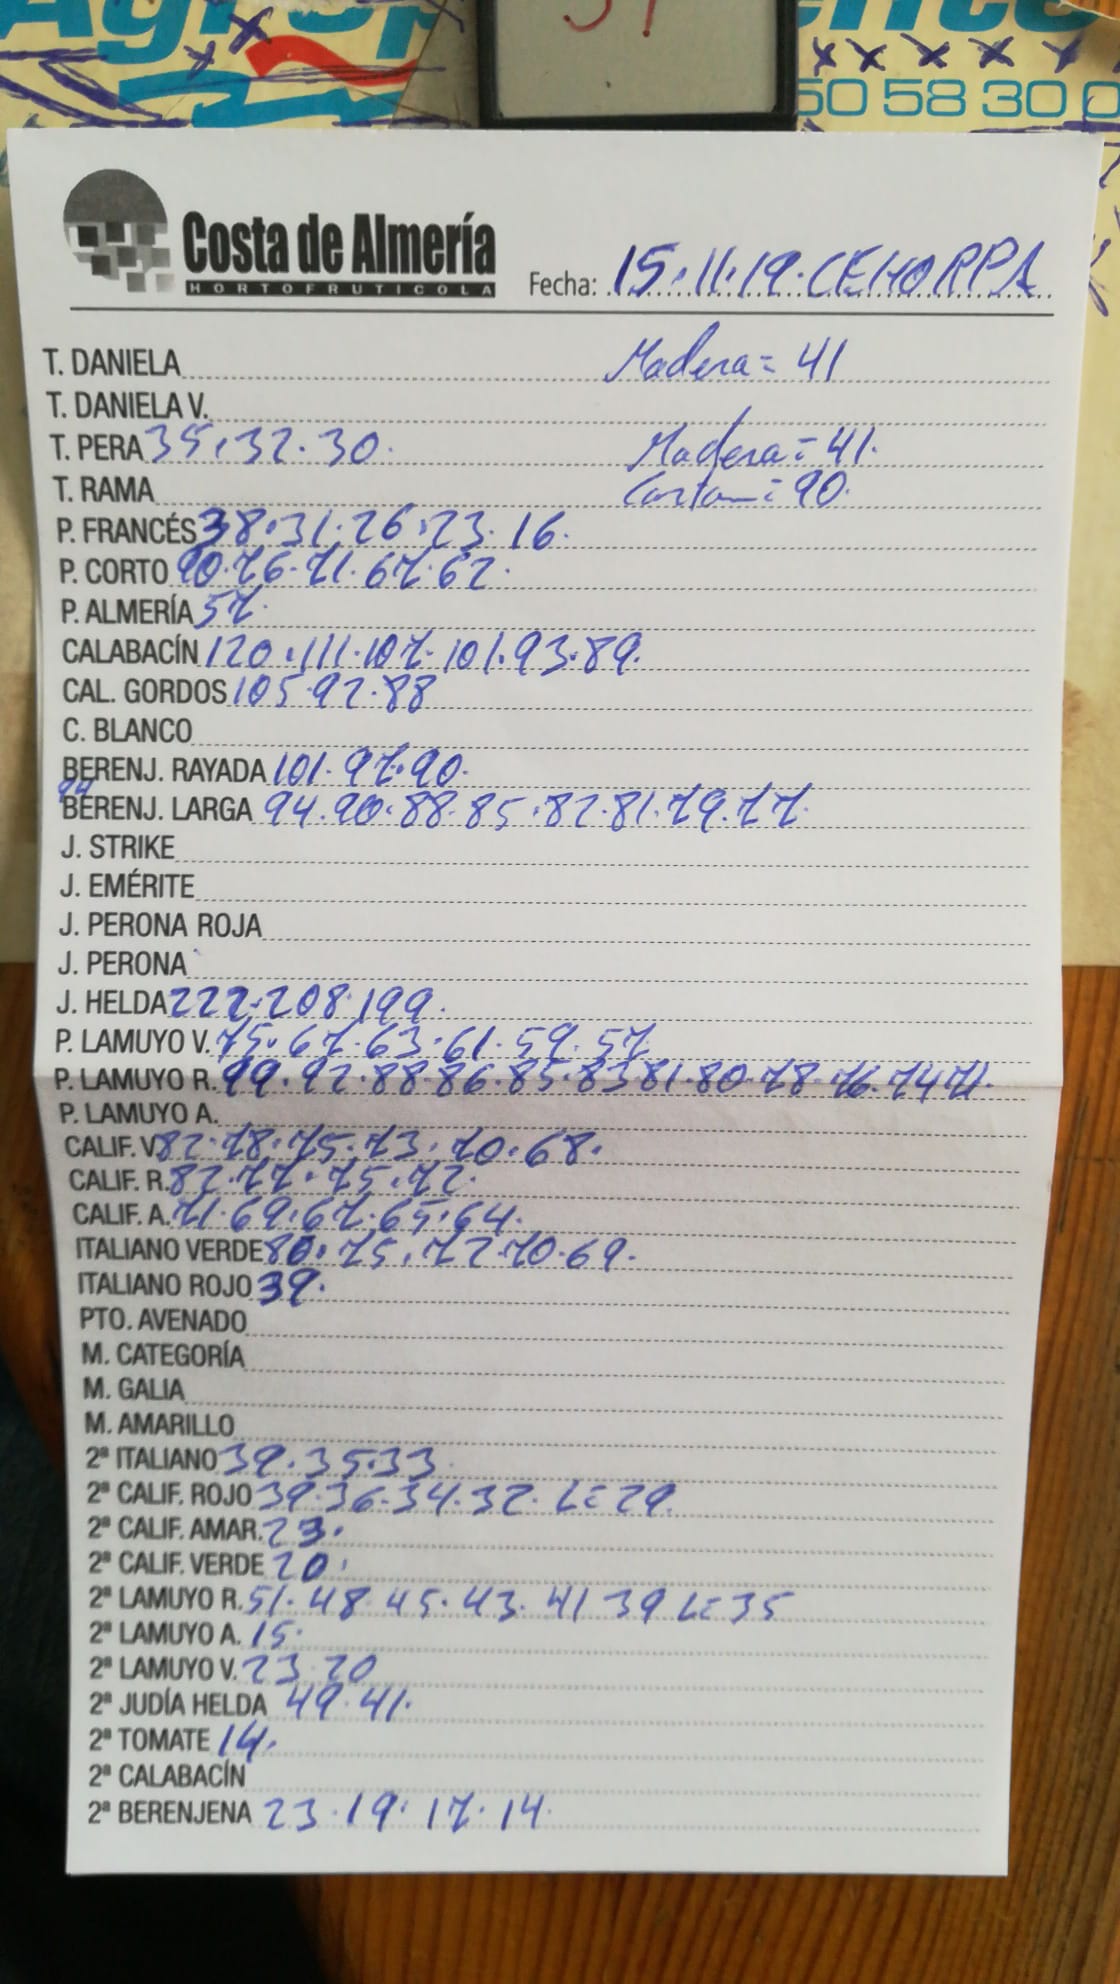 50 58 30 0
Costa de Almería
HORTOFRUTICOLA
Fecha: 15.11.19.CEHORPA
T. DANIELA Madera = 41
T. DANIELA V.
T. PERA 35.32.30. Madera = 41.
T. RAMA Carton = 90.
P. FRANCÉS 38.31.26.23.16.
P. CORTO 90.76.71.67.62.
P. ALMERÍA 57.
CALABACÍN 120.111.107.101.93.89.
CAL. GORDOS 105.92.88
C. BLANCO
BERENJ. RAYADA 101.97.90.
BERENJ. LARGA 94.90.88.85.82.81.79.77.
J. STRIKE
J. EMÉRITE
J. PERONA ROJA
J. PERONA
J. HELDA 222.208.199.
P. LAMUYO V. 75.67.63.61.59.57
P. LAMUYO R. 99.92.88.86.85.83 81.80.78.76.74 71.
P. LAMUYO A.
CALIF. V 82.78.75.73.70.68.
CALIF. R. 82.77.75.72.
CALIF. A. 71.69.67.65.64.
ITALIANO VERDE 80.75.72.70.69.
ITALIANO ROJO 39.
PTO. AVENADO
M. CATEGORÍA
M. GALIA
M. AMARILLO
2ª ITALIANO 39.35.33
2ª CALIF. ROJO 39.36.34.32. L=29.
2ª CALIF. AMAR. 23.
2ª CALIF. VERDE 20.
2ª LAMUYO R. 51.48 45.43.41 39 L=35
2ª LAMUYO A. 15.
2ª LAMUYO V. 23.20
2ª JUDÍA HELDA 49.41.
2ª TOMATE 14.
2ª CALABACÍN
2ª BERENJENA 23.19.17.14.